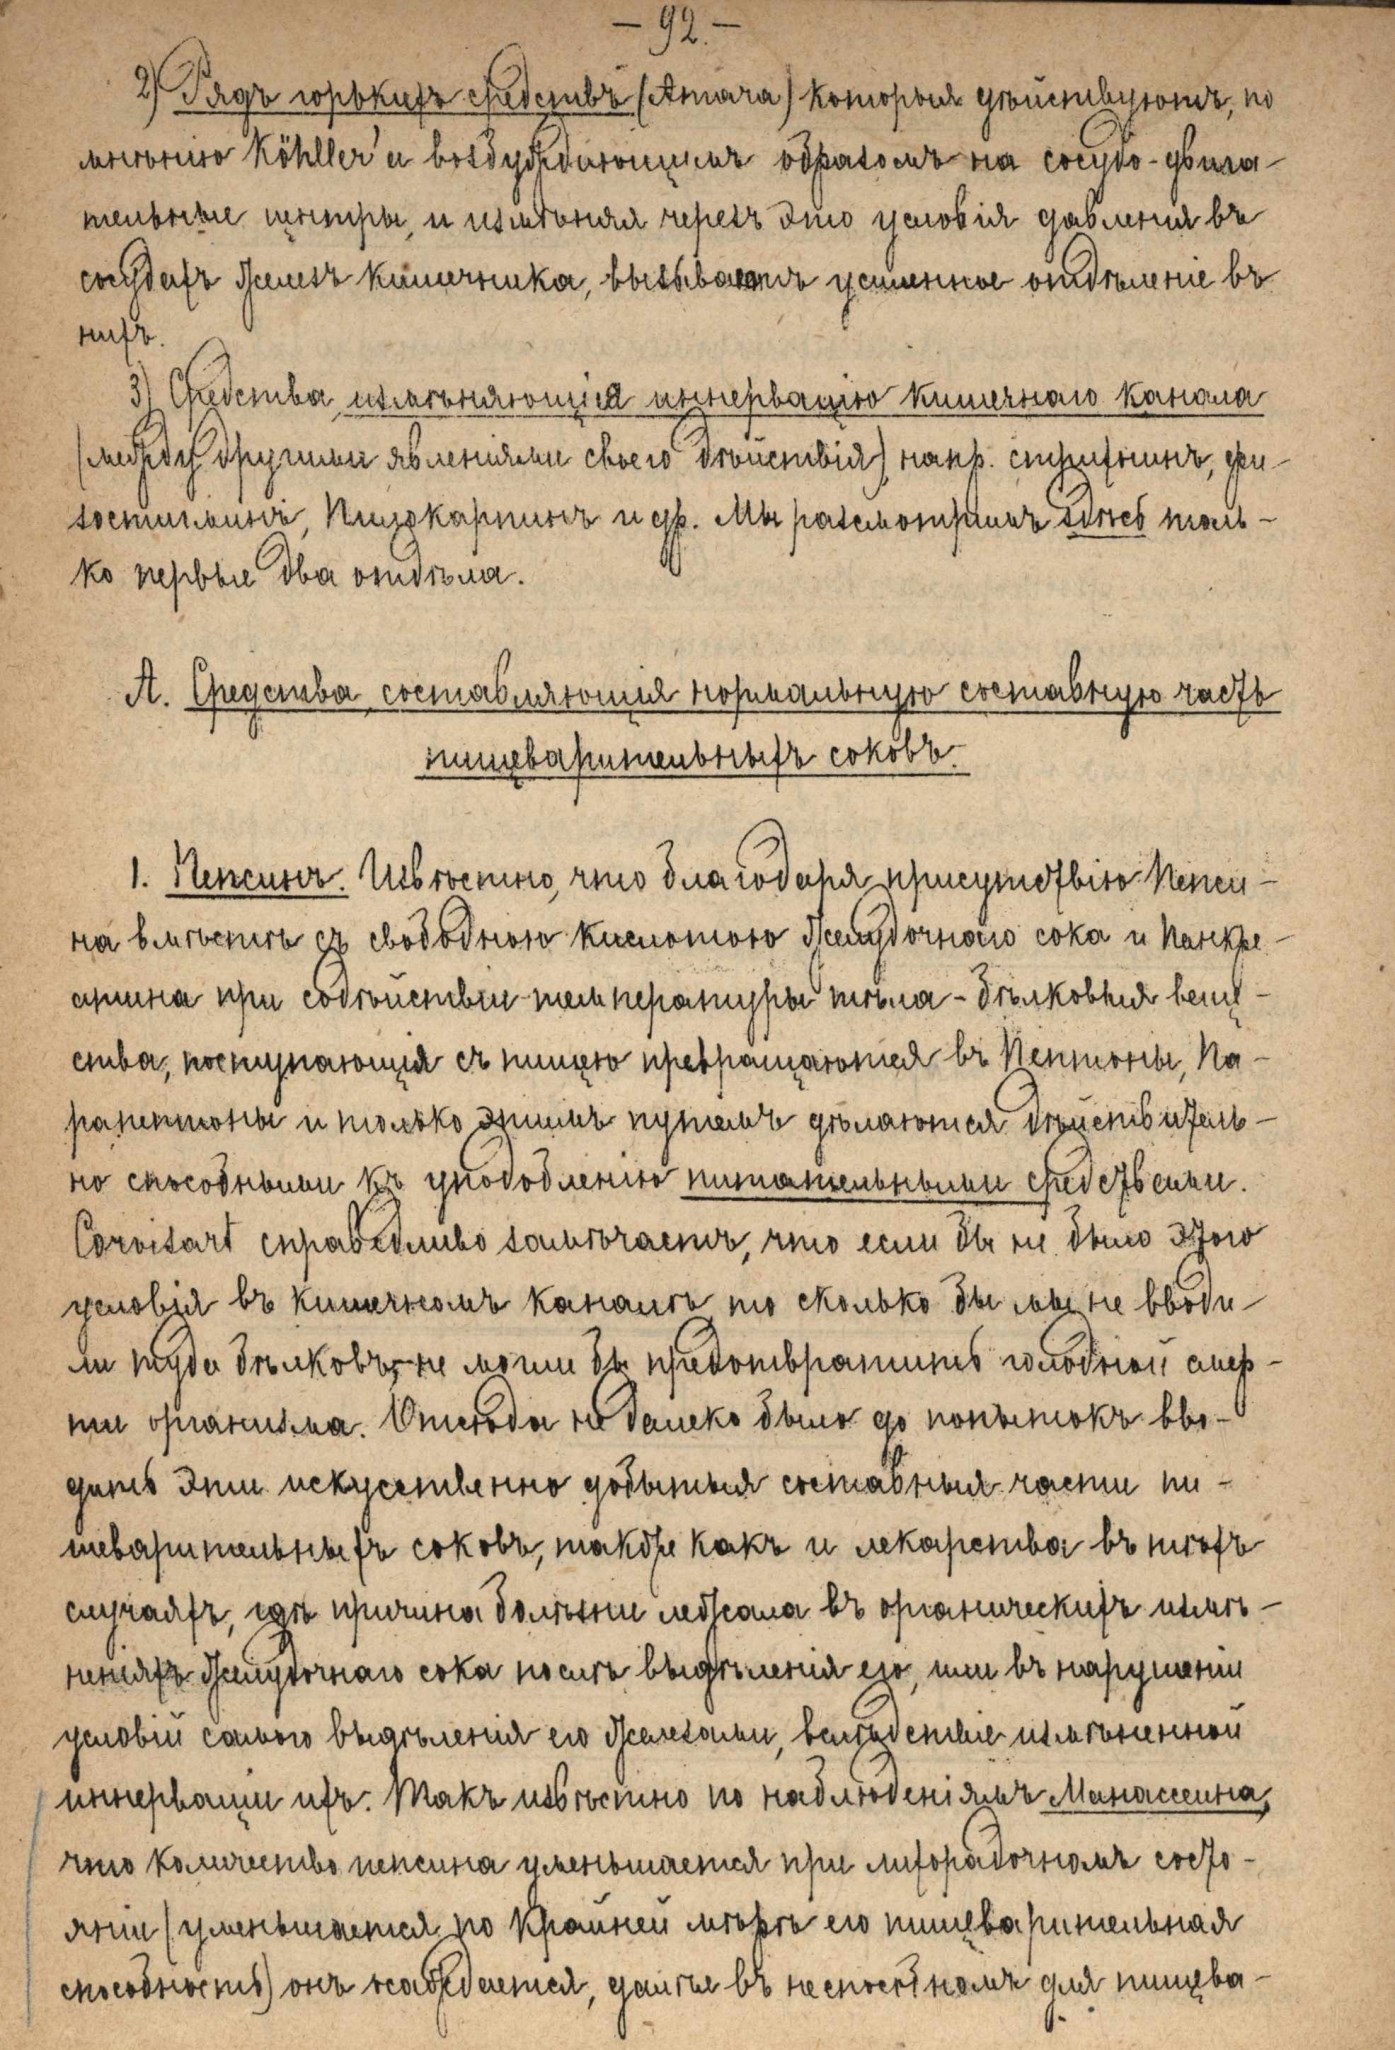 — 92. —
2) Рядъ горькихъ средствъ (Amara) которыя дѣйствуютъ, по
мнѣнію Köhller'а возбуждающимъ образомъ на сосудо-двига-
тельные центры, и измѣняя черезъ это условія давленія въ
сосудахъ железъ кишечника, вызываетъ усиленное отдѣленіе въ
нихъ.
3) Средства, измѣняющія иннервацію кишечнаго канала
(между другими явленіями своего дѣйствія), напр. стрихнинъ, фи-
зостигминъ, Пилокарпинъ и др. Мы разсмотримъ здѣсь толь-
ко первые два отдѣла.
А. Средства, составляющія нормальную составную часть
пищеварительныхъ соковъ.
1. Пепсинъ. Извѣстно, что благодаря присутствію Пепси-
на вмѣстѣ съ свободною кислотою желудочнаго сока и Панкре-
атина при содѣйствіи температуры тѣла - бѣлковыя веще-
ства, поступающія съ пищею превращаются въ Пептоны, Па-
рапептоны и только этимъ путемъ дѣлаются дѣйствитель-
но способными къ уподобленію питательными средствами.
Corvisart справедливо замѣчаетъ, что если бы не было этого
условія въ кишечномъ каналѣ, то сколько бы мы не вводи-
ли туда бѣлковъ, не могли бы предотвратить голодной смер-
ти организма. Отсюда не далеко было до попытокъ вво-
дить эти искусственно добытыя составныя части пи-
щеварительныхъ соковъ, также какъ и лекарства въ тѣхъ
случаяхъ, гдѣ причина болѣзни лежала въ органическихъ измѣ-
неніяхъ желудочнаго сока послѣ выдѣленія его, или въ нарушеніи
условій самого выдѣленія его железами, вслѣдствіе измѣненной
иннерваціи ихъ. Такъ извѣстно по наблюденіямъ Манассеина,
что количество пепсина уменьшается при лихорадочномъ состо-
яніи (уменьшается по крайней мѣрѣ его пищеварительная
способность) онъ осаждается, далѣе въ неспособномъ для пищева-